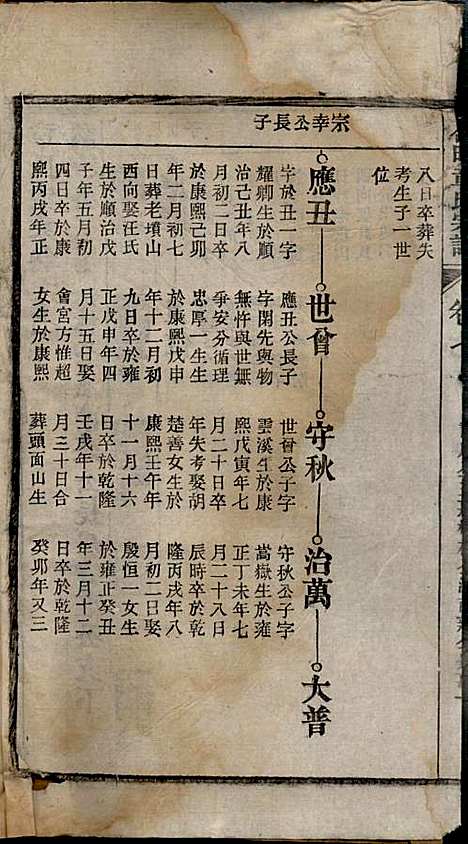 八日卒葬失
考生子一世
位
宗幸公長子
應丑
世曾
守秋
治萬
大普
字於丑一字
耀卿生於順
治己丑年八
月初二日卒
於康熙己卯
年二月初七
日葬老墳山
西向娶汪氏
生於順治戊
子年五月初
四日卒於康
熙丙戌年正
應丑公長子
字閑先與物
無忤與世無
爭安分循理
忠厚一生生
於康熙戊申
年十二月初
九日卒於雍
正戊申年四
月十五日娶
會宮方惟超
女生於康熙
世曾公子字
雲溪生於康
熙戊寅年七
月二十日卒
年失考娶胡
楚善女生於
康熙壬午年
十一月十六
日卒於乾隆
壬戌年十一
月三十日合
葬頭面山生
守秋公子字
嵩嶽生於雍
正丁未年七
月二十八日
辰時卒於乾
隆丙戌年八
月初二日娶
殷恒一女生
於雍正癸丑
年三月十二
日卒於乾隆
癸卯年又三